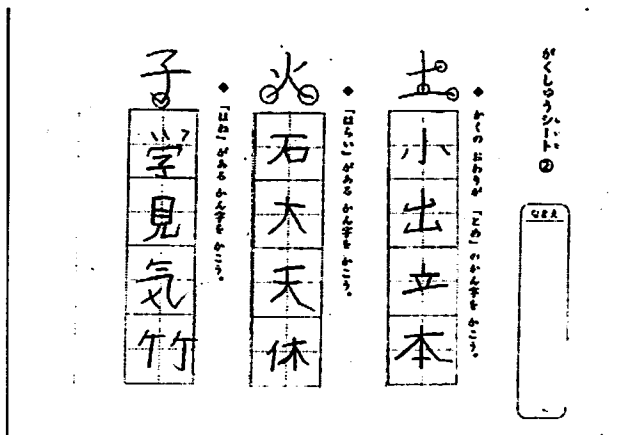 がくしゅうシート②
なまえ
◆ かくの おわりが 「とめ」の かん字を かこう。
土
小
出
立
本
◆ 「はらい」が ある かん字を かこう。
火
石
大
天
休
◆ 「はね」が ある かん字を かこう。
子
学
見
気
竹